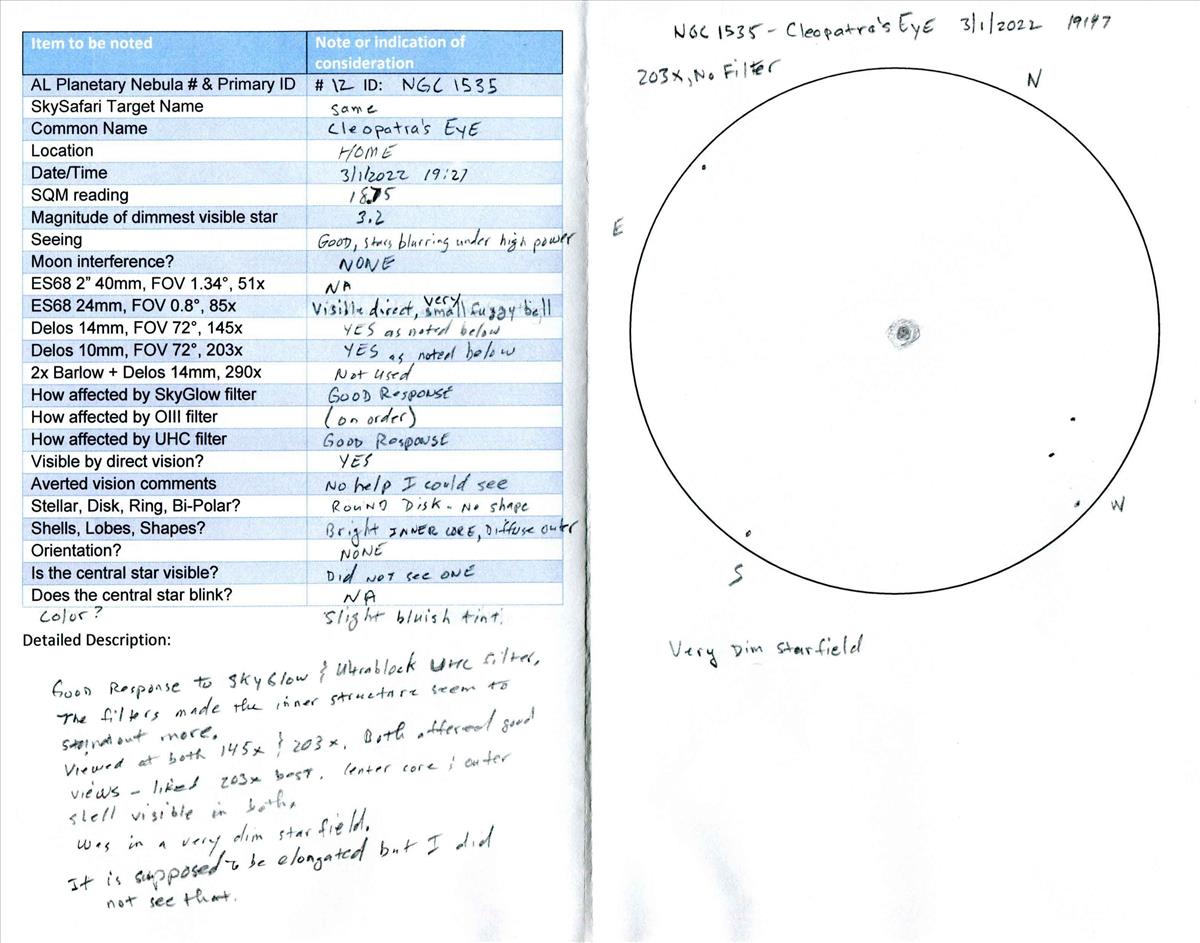 Item to be noted Note or indication of consideration
AL Planetary Nebula # & Primary ID # 12 ID: NGC 1535
SkySafari Target Name same
Common Name Cleopatra's EyE
Location HOME
Date/Time 3/1/2022 19:27
SQM reading 18.75
Magnitude of dimmest visible star 3.2
Seeing GOOD, stars blurring under high power
Moon interference? NONE
ES68 2” 40mm, FOV 1.34°, 51x NA
ES68 24mm, FOV 0.8°, 85x Visible direct, very small fuzzy ball
Delos 14mm, FOV 72°, 145x YES as noted below
Delos 10mm, FOV 72°, 203x YES as noted below
2x Barlow + Delos 14mm, 290x Not used
How affected by SkyGlow filter GOOD RESPONSE
How affected by OIII filter (on order)
How affected by UHC filter GOOD RESPONSE
Visible by direct vision? YES
Averted vision comments No help I could see
Stellar, Disk, Ring, Bi-Polar? ROUND DISK - No shape
Shells, Lobes, Shapes? Bright INNER CORE, Diffuse outer
Orientation? NONE
Is the central star visible? Did NOT see ONE
Does the central star blink? NA
Color? Slight bluish tint.
Detailed Description:
Good Response to SkyGlow & Ultrablock UHC filter.
The filters made the inner structure seem to
standout more.
Viewed at both 145x & 203x. Both offered good
views - liked 203x best. Center core & outer
shell visible in both.
Was in a very dim starfield.
It is supposed to be elongated but I did
not see that.
NGC 1535 - Cleopatra's EyE 3/1/2022 19:47
203x, No Filter
N
E
W
S
Very Dim starfield